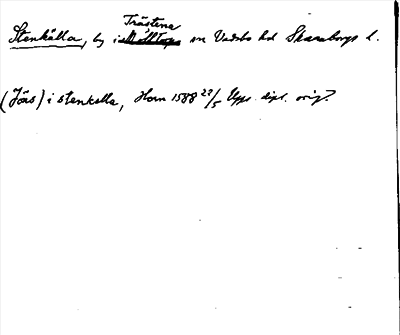 Trästena
Stenkälla, by i Mölltorps sn Vadsbo hd Skaraborgs l.
(Jöns) i stenkella, Horn 1588 22/5 Upps. dipl. orig?